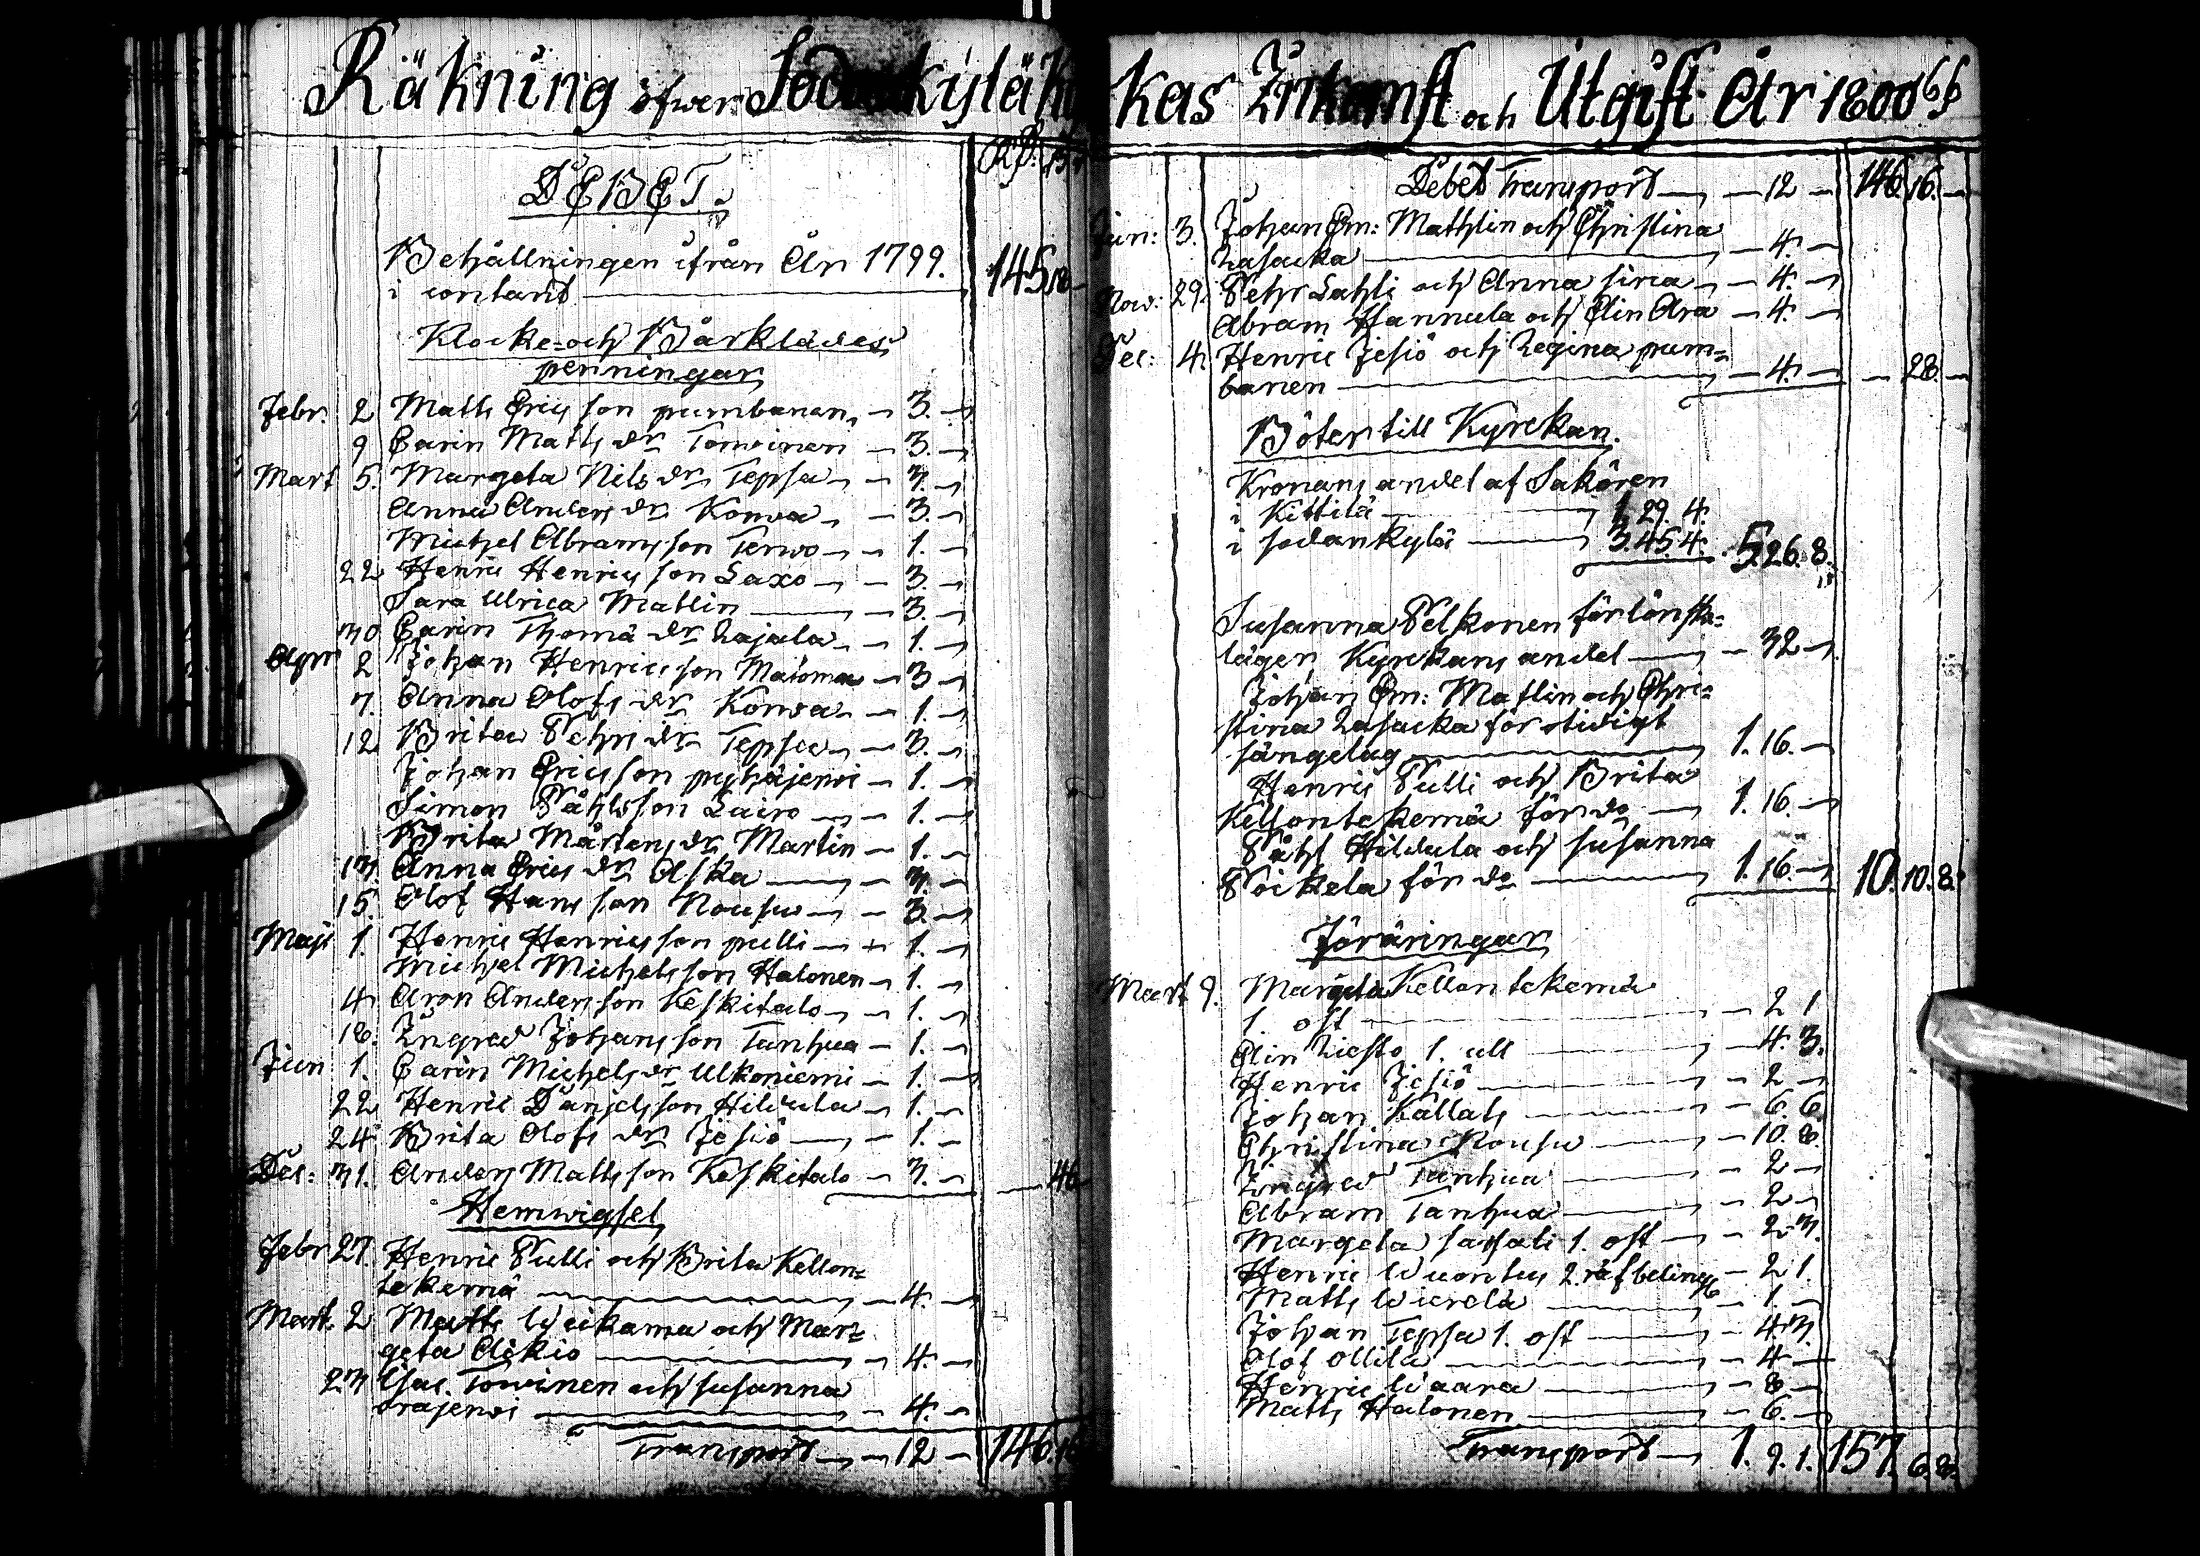 Räkning öfwer Sodankylä Kyrkas Inkomst och Utgift År 1800 66
Rd:
DEBET.
Behållningen ifrån År 1799.
i contant 145.18
Klocke- och Bårklädes
penningar
Febr. 2 Matts Erics son pumbanen 3.
9 Carin Matts dr Towinen 3.
Mart 5. Margeta Nils dr Tepsa 3.
Anna Anders dr Konsa 3.
Michel Abrams son Terwo 1.
22 Henric Henrics son Saxo 3.
Sara Ulrica Matlin 3.
30 Carin Thoma dr Rajala 1.
Apr 2 Johan Henrics son Maloma 3
7. Anna Olofs dr Konsa 1.
12 Brita Pehrs dr Tepsa 3.
Johan Erics son pyhäjerwi 1.
Simon Påhls son Sairo 1.
Brita Mårtens dr Martin 1.
13 Anna Erics dr Aska 3.
15. Olof Hans son Rousu 3.
Maji 1. Henric Henrics son pulli 1.
Michel Michels son Halonen 1.
4 Aron Anders son Keskitalo 1.
18. Ingred Johans son Tanhua 1.
Jun 1. Carin Michels dr Ulkoniemi 1.
22 Henric Danjels son Hildula 1.
24 Brita Olofs dr Jesiö 1.
Dec: 31. Anders Matts son Keskitalo 3. 46
Hemwigsel
Febr 27. Henric Pulli och Brita Kellon=
tekemä 4.
Mart. 2 Matts Weikama och Mar=
geta Aikio 4.
23 Isac. Towinen och susanna
orajerwi 4.
Transport 12 146.16
Debet Transport 12 146 16.
Jun: 3. Johan Em: Mathlin och Christina
Rasacka 4.
Nov: 29. Pehr Lahti och Anna sirca 4.
Abram Hannula och Elin Ara 4.
Dec: 4. Henric Jesiö och Regina pum=
banen 4. 28.
Böter till Kyrckan.
Kronans andel af Sakören
i Kittilä 1. 29. 4.
i sodankylä 3. 45. 4. 5. 26. 8.
Susanna Pelkonen för lönska=
läger, Kyrckans andel 32
Johan Em: Matlin och Chri=
stina Rasacka för otidigt
sängelag 1. 16.
Henric Pulli och Brita
Kellontekemä för do 1. 16.
Påhl Hildula och susanna
Poikela för do 1. 16. 10. 10. 8.
Föräringar
Mart 9. Margeta Kellontekemä
1. ost 2 1
Elin Liesto 1. ull 4. 3.
Henric Jesiö 2
Johan Kallats 6. 6.
Christina Rousu 10. 8.
Ingred Tanhua 2
Abram Tanhua 2
Margeta sassali 1. ost 2 3.
Henric Wuontus 2 räf belingz 2 1.
Matts Wuerela 1.
Johan Tepsa 1. ost 4 3.
Olof Ollila 4
Henric Waara 8
Matts Halonen 6.
Transport 1. 9. 1. 157. 6. 8.